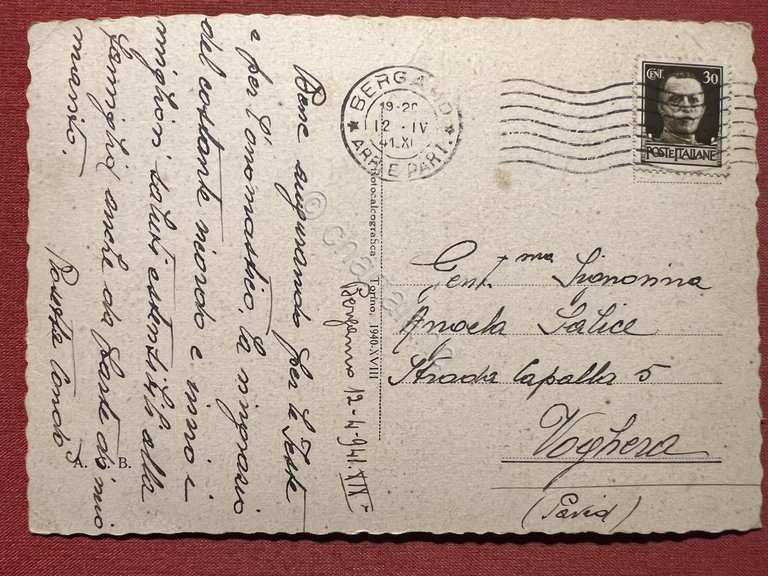 Bene augurando per le Feste
e per l'onomastico, la ringrazio
del costante ricordo e invio i
migliori saluti estensibili alla
famiglia anche da parte di mio
marito.
Bergamo 12-4-941. XIX°
A. B.
Fotocalcografica Torino, 1940-XVIII
BERGAMO
19-20
12 - IV
41.XI
ARR. E PART.
CENT. 30
POSTE ITALIANE
Gent.ma Signorina
Angela Salice
Strada Capalla 5
Voghera
(Pavia)
© charta